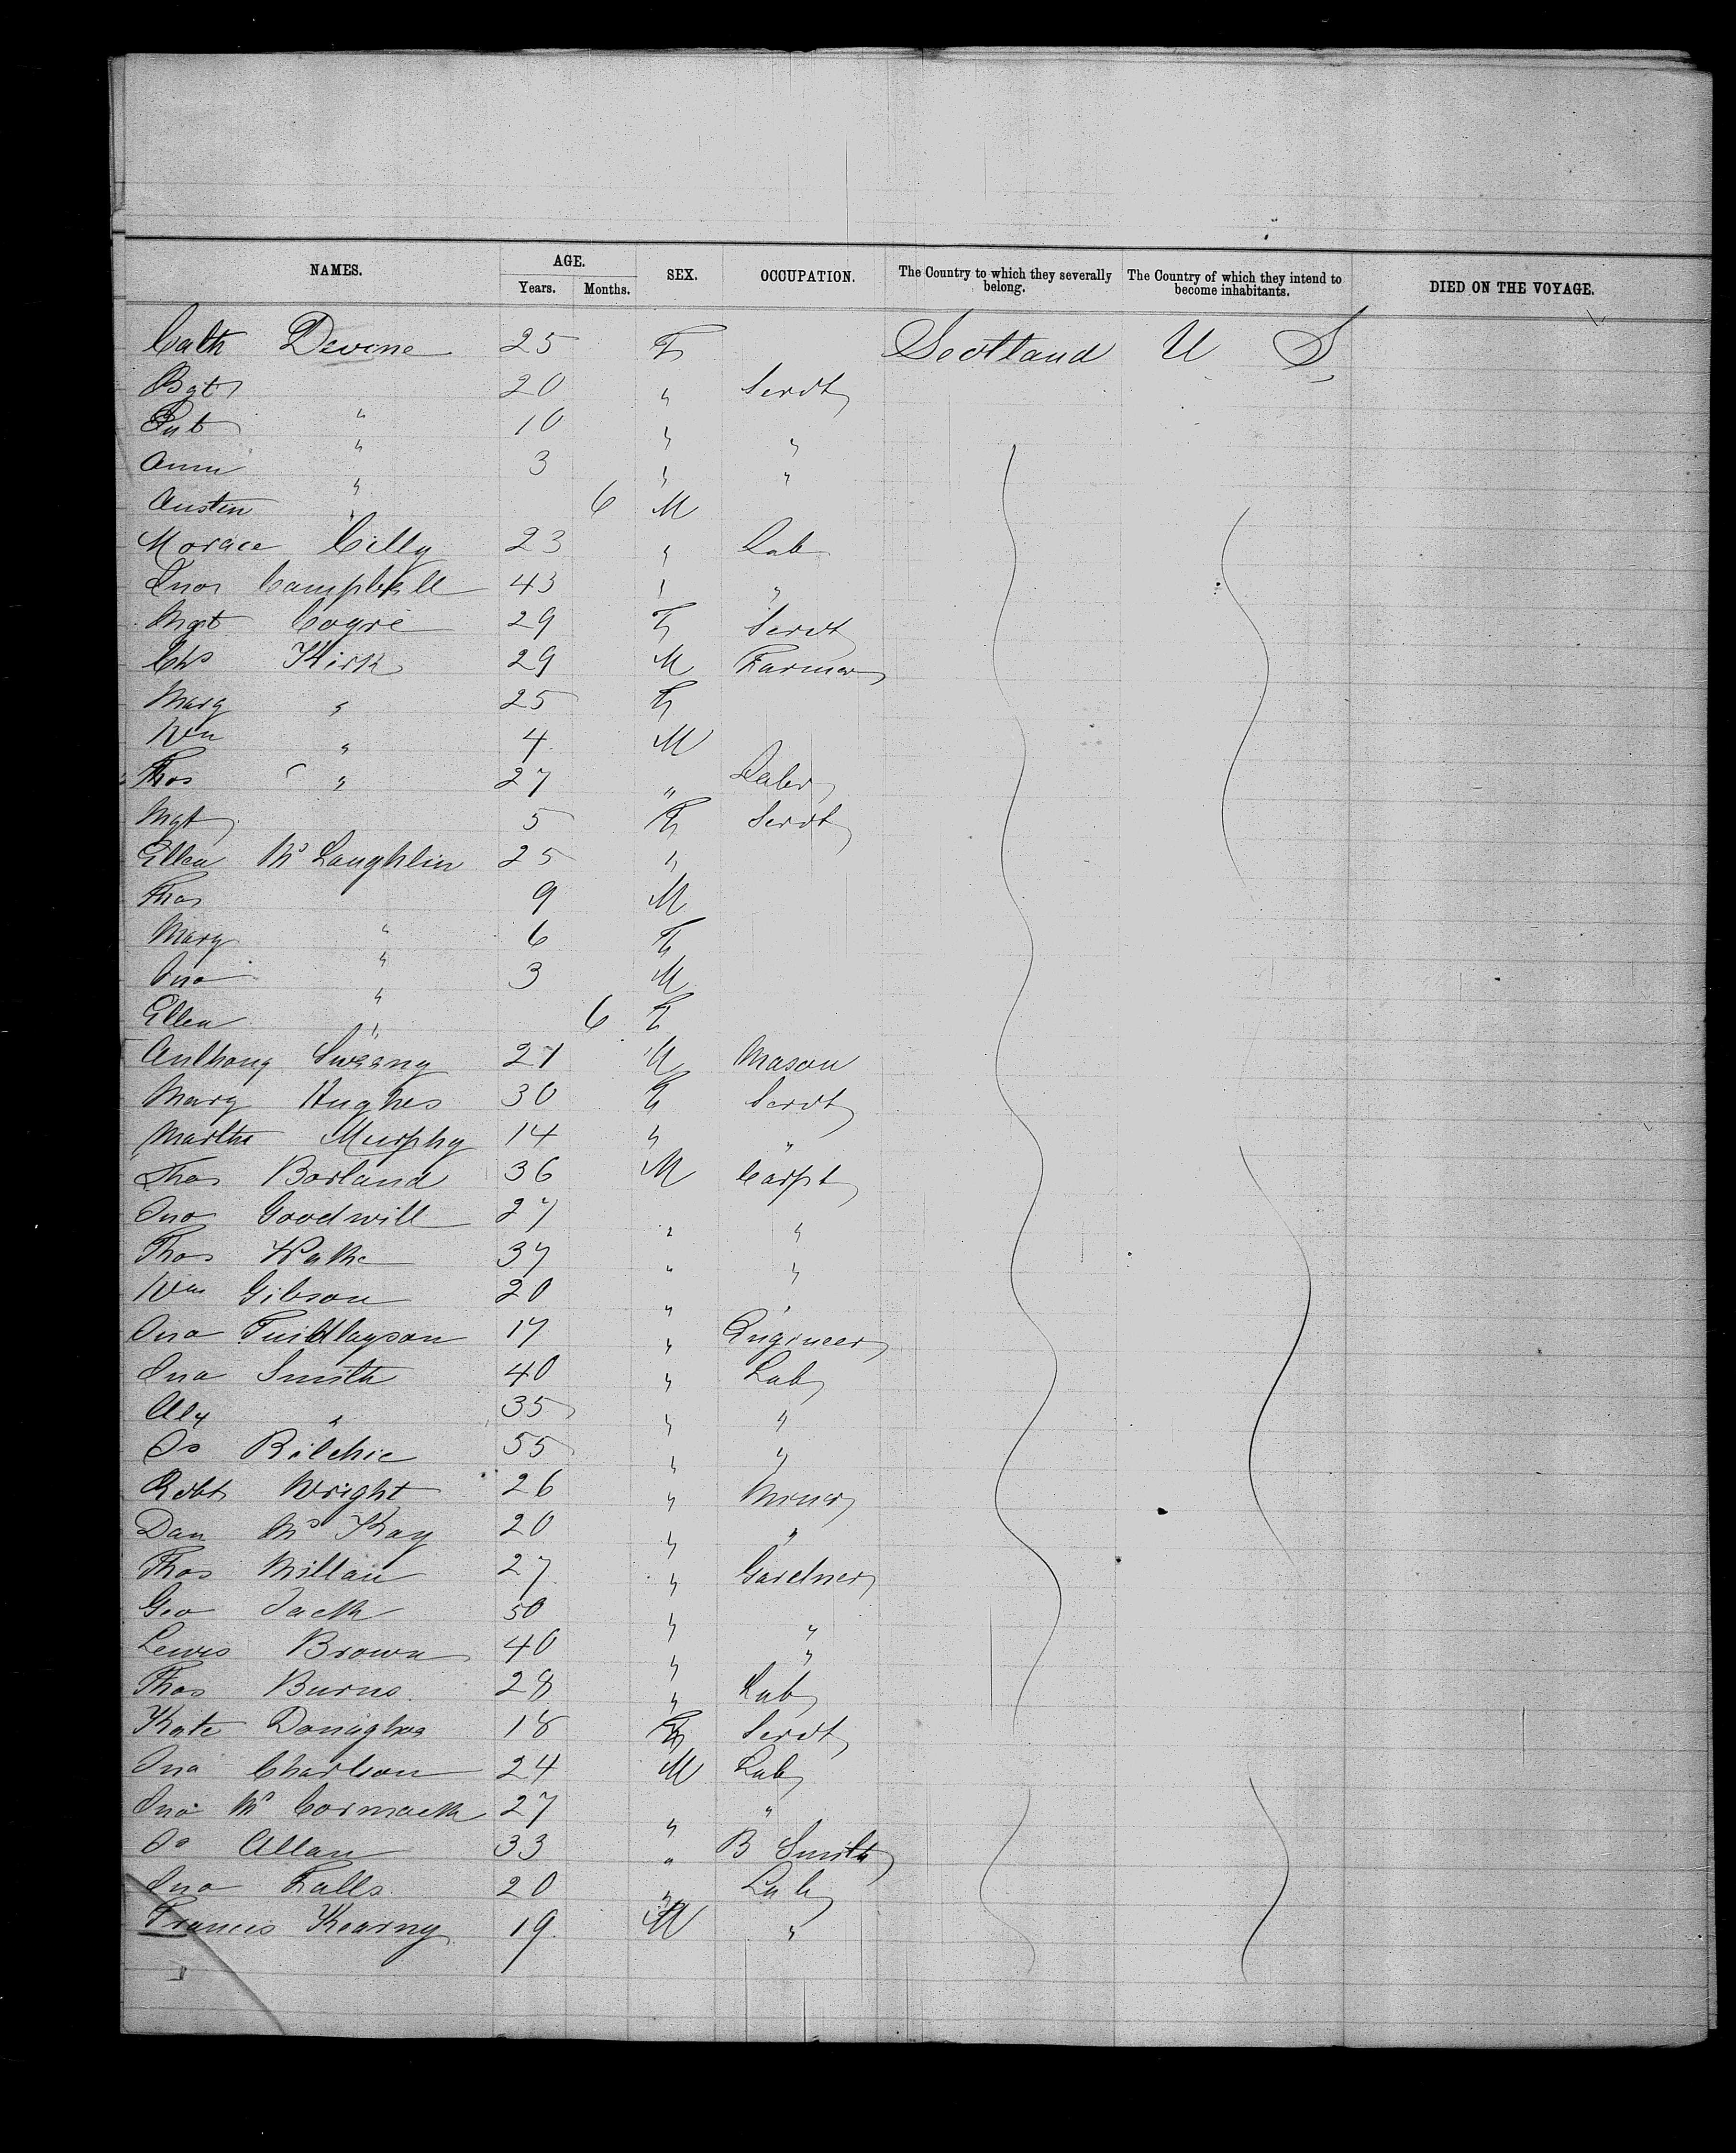 NAMES. AGE. SEX. OCCUPATION. The Country to which they severally belong. The Country of which they intend to become inhabitants. DIED ON THE VOYAGE.
Years. Months.
Cath Devine 25 F Scotland U S
Bgt 20 " Servt
Pat " 10 " "
Ann " 3 " "
Austin " 6 M
Morace Cilly 23 " Lab
Jno Campbell 43 " "
Mgt Coyne 29 F Servt
Chs Kirk 29 M Farmer
Mary " 25 F
Wm " 4 M
Thos " 27 " Labr
Mgt 5 F Servt
Ellen Mc Laughlin 25 "
Thos 9 M
Mary " 6 F
Jno " 3 M
Ellen " 6 F
Anthony Sweeny 27 M Mason
Mary Hughes 30 F Servt
Martha Murphy 14 " "
Thos Borland 36 M Carpt
Jno Goodwill 27 " "
Thos 37 " "
Wm Gibson 20 " "
Jno 17 " Engineer
Jno Smith 40 " Lab
Alx " 35 " "
Js Ritchie 55 " "
Robt Wright 26 " Miner
Dan Mc Kay 20 " "
Thos Millan 27 " Gardner
Geo Jack 50 " "
Lewis Brown 40 " "
Thos Burns 28 " Lab
Kate Donaghoa 18 F Servt
Jno Charlson 24 M Lab
Jno Mc Cormack 27 " "
Js Allan 33 " B Smith
Jno Falls 20 " Lab
Francis Kearny 19 M "